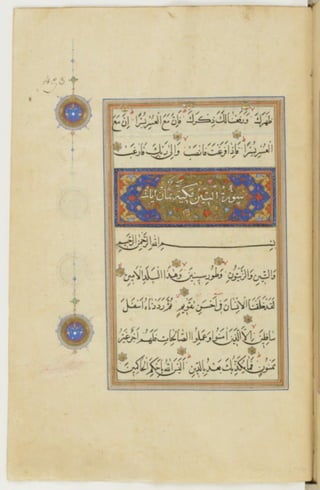 ظهرك ورفعنا لك ذكرك فإن مع العسر يسرا إن مع
العسر يسرا فإذا فرغت فانصب وإلى ربك فارغب
سورة التين مكية ثمان آيات
بسم الله الرحمن الرحيم
والتين والزيتون وطور سينين وهذا البلد الأمين
لقد خلقنا الإنسان في أحسن تقويم ثم رددناه أسفل
سافلين إلا الذين آمنوا وعملوا الصالحات فلهم أجر غير
ممنون فما يكذبك بعد بالدين أليس الله بأحكم الحاكمين